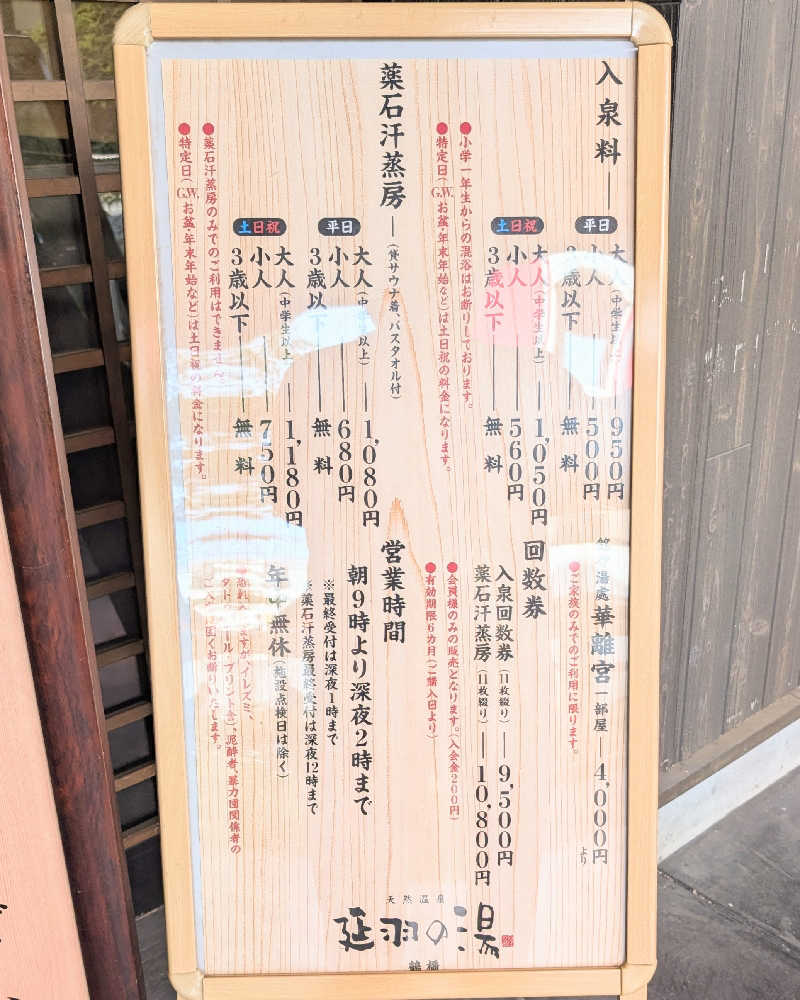 入泉料
平日
大人(中学生以上)950円
小人500円
3歳以下 無料
土日祝
大人(中学生以上)1,050円
小人560円
3歳以下 無料
●小学一年生からの混浴はお断りしております。
●特定日(G.W、お盆・年末年始など)は土日祝の料金になります。
薬石汗蒸房(貸サウナ着、バスタオル付)
平日
大人(中学生以上)1,080円
小人680円
3歳以下 無料
土日祝
大人(中学生以上)1,180円
小人750円
3歳以下 無料
●薬石汗蒸房のみでのご利用はできません。
●特定日(G.W、お盆・年末年始など)は土日祝の料金になります。
湯處 華離宮 一部屋 4,000円より
●ご家族のみでのご利用に限ります。
回数券
入泉回数券(11枚綴り)9,500円
薬石汗蒸房(11枚綴り)10,800円
●会員様のみの販売となります。(入会金200円)
●有効期限6カ月(ご購入日より)
営業時間
朝9時より深夜2時まで
※最終受付は深夜1時まで
※薬石汗蒸房最終受付は深夜12時まで
年中無休(施設点検日は除く)
ますが、イレズミ、
タトゥー(シール・プリント含)、泥酔者、暴力団関係者の
ご入場は固くお断りいたします。
天然温泉
延羽の湯
鶴橋